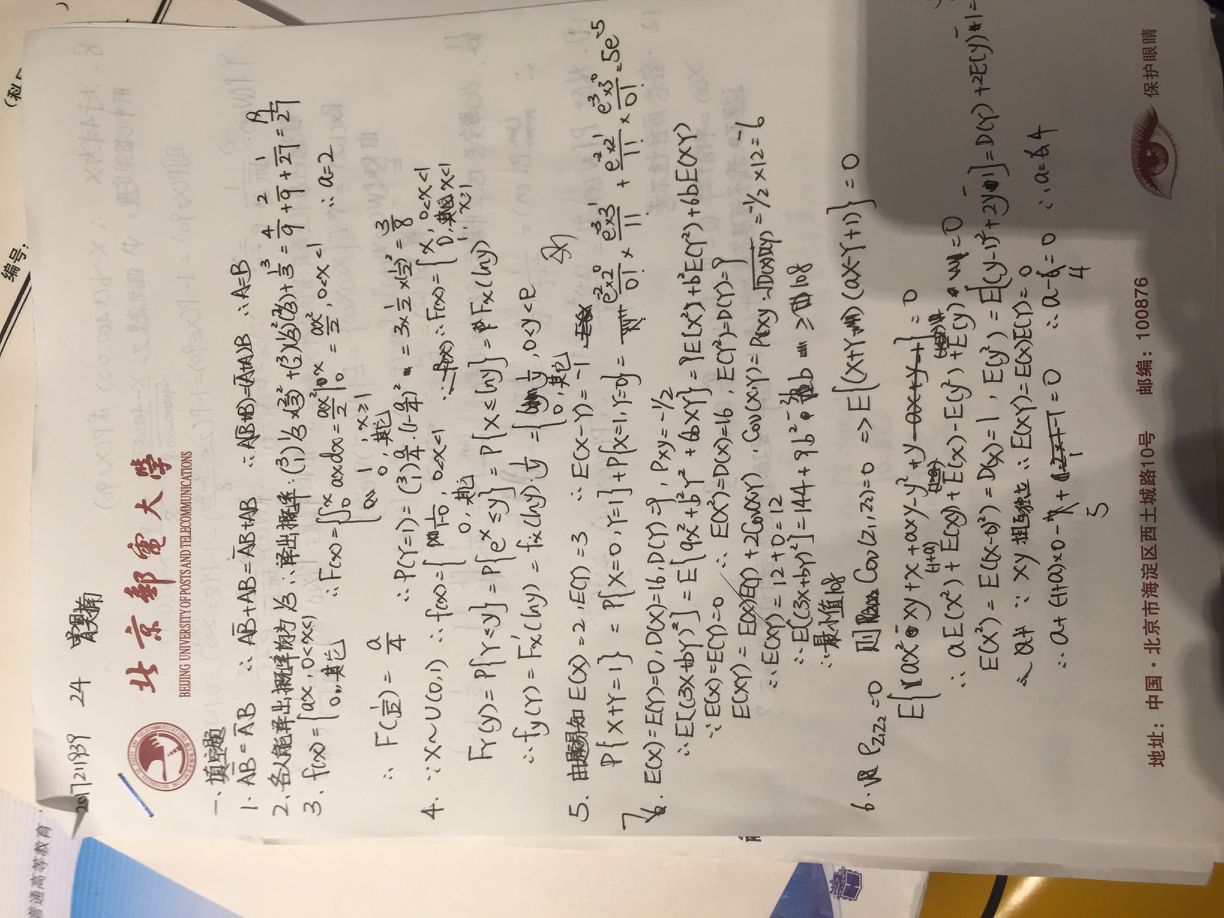 编号:
(科
普通高等教育
2017211939 24
北京邮电大学
BEIJING UNIVERSITY OF POSTS AND TELECOMMUNICATIONS
一、填空题
1. AB̅ = A̅B ∴ AB̅+AB = A̅B+AB ∴ A(B̅+B)=(A̅+A)B ∴ A=B
2. 各人能译出概率均为 1/3 ∴译出概率: (³₁) 1/3 × (2/3)² + (³₂)(1/3)²(2/3) + 1/3³ = 4/9 + 2/9 + 1/27 = 19/27
3. f(x) = { ax, 0<x<1
0, 其它
∴ F(x) = { ∫₀ˣ ax dx = ax²/2 |₀ˣ = ax²/2, 0<x<1 ∴ a=2
1, x≥1
0, 其它
∴ F(1/√2) = a/4 ∴ P(Y=1) = (³₁) a/4 · (1-a/4)² = 3×1/2×(1/2)² = 3/8
4. ∵ X~U(0,1) ∴ f(x) = { 1/1-0, 0<x<1 ∴ F(x) = { x, 0<x<1
0, 其它
0, x<1
1, x≥1
F_Y(y) = P{Y≤y} = P{eˣ≤y} = P{X≤lny} = F_X(lny)
∴ f_y(Y) = F_X'(lny) = f_X(lny)·1/y = { 1/y, 0<y<e
0, 其它
5. 由题易知 E(X)=2, E(Y)=3 ∴ E(X-Y)=-1
P{X+Y=1} = P{X=0,Y=1}+P{X=1,Y=0} = e⁻²×2⁰/0! × e⁻³×3¹/1! + e⁻²×2¹/1! × e⁻³×3⁰/0! = 5e⁻⁵
7. E(X)=E(Y)=0, D(X)=16, D(Y)=9, ρxy=-1/2
∴ E[(3X+bY)²] = E{9X²+b²Y²+6bXY} = 9E(X²)+b²E(Y²)+6bE(XY)
∵ E(X)=E(Y)=0 ∴ E(X²)=D(X)=16, E(Y²)=D(Y)=9
E(XY) = E(X)E(Y)+2Cov(X,Y), Cov(X,Y)=ρxy·√D(X)D(Y)=-1/2×12=-6
∴ E(XY)=12+0=12
∴ E[(3X+bY)²]=144+9b²-36b ≥108
∴最小值108
6. 设 ρ_Z₁Z₂=0 则 Cov(Z₁,Z₂)=0 => E{(X+Y)(aX-Y+1)} = 0
E{(ax²-xy+x+axy-y²+y} = 0
∴ aE(x²)+E(xy)+E(x)-E(y²)+E(y)=0
E(x²) = E((x-0)²) = D(x)=1, E(y²) = E[(y-1)²+2y-1] = D(Y)+2E(y)-1=
∵ xy 相互独立 ∴ E(XY)=E(X)E(Y)=0
∴ a+(-1+a)×0-5+1=0 ∴ a-4=0 ∴ a=4
地址：中国·北京市海淀区西土城路10号 邮编：100876
保护眼睛